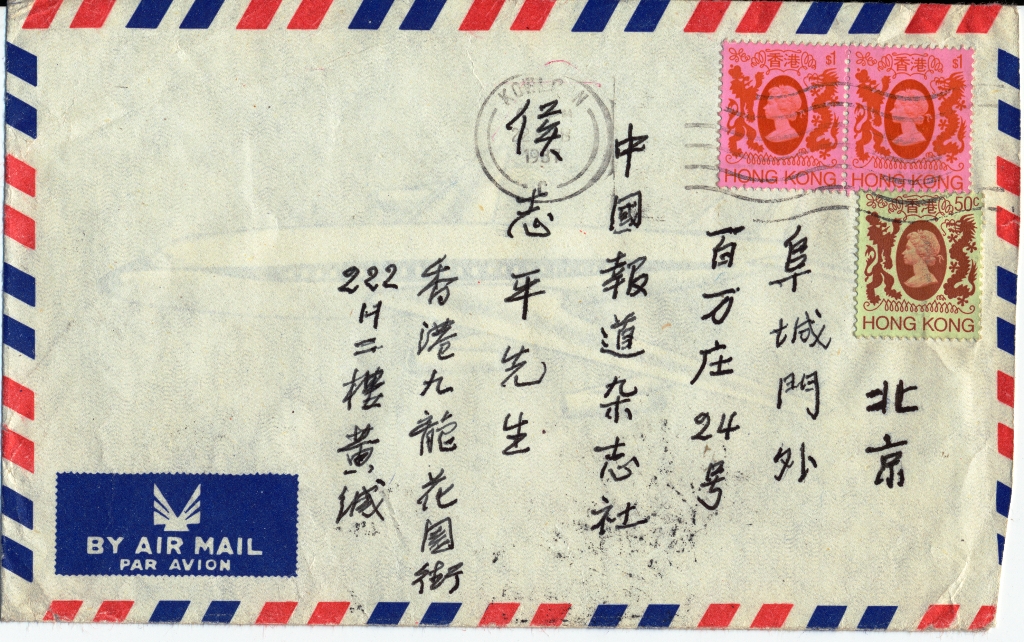 北京
阜城門外
百万庄24号
中國報道杂志社
侯志平先生
香港九龍花園街
222 H 二樓黃
香港 $1
HONG KONG
香港 $1
HONG KONG
香港 50c
HONG KONG
KOWLOON
BY AIR MAIL
PAR AVION